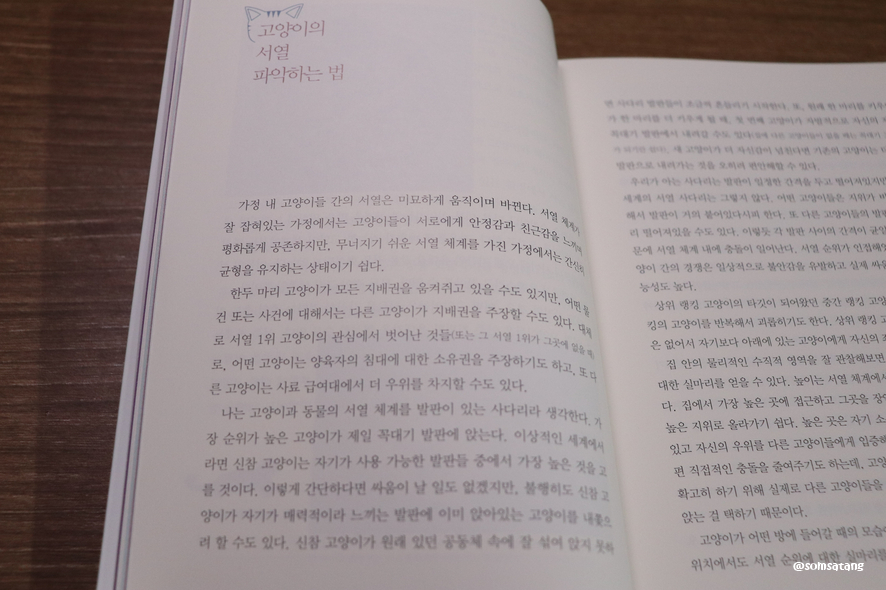 고양이의
서열
파악하는 법
가정 내 고양이들 간의 서열은 미묘하게 움직이며 바뀐다. 서열 체계가
잘 잡혀있는 가정에서는 고양이들이 서로에게 안정감과 친근감을 느끼며
평화롭게 공존하지만, 무너지기 쉬운 서열 체계를 가진 가정에서는 간신히
균형을 유지하는 상태이기 쉽다.
한두 마리 고양이가 모든 지배권을 움켜쥐고 있을 수도 있지만, 어떤 물
건 또는 사건에 대해서는 다른 고양이가 지배권을 주장할 수도 있다. 대체
로 서열 1위 고양이의 관심에서 벗어난 것들(또는 그 서열 1위가 그곳에 없을 때)
로, 어떤 고양이는 양육자의 침대에 대한 소유권을 주장하기도 하고, 또 다
른 고양이는 사료 급여대에서 더 우위를 차지할 수도 있다.
나는 고양이과 동물의 서열 체계를 발판이 있는 사다리라 생각한다. 가
장 순위가 높은 고양이가 제일 꼭대기 발판에 앉는다. 이상적인 세계에서
라면 신참 고양이는 자기가 사용 가능한 발판들 중에서 가장 높은 것을 고
를 것이다. 이렇게 간단하다면 싸움이 날 일도 없겠지만, 불행히도 신참 고
양이가 자기가 매력적이라 느끼는 발판에 이미 앉아있는 고양이를 내쫓으
려 할 수도 있다. 신참 고양이가 원래 있던 공동체 속에 잘 섞여 앉지 못하
면 사다리 발판들이 조금씩 흔들리기 시작한다. 또, 원래 한 마리를 키우
가 한 마리를 더 키우게 될 때, 첫 번째 고양이가 자발적으로 자신의
꼭대기 발판에서 내려갈 수도 있다
새 고양이가 더 자신감이 넘친다면 기존의 고양이는
발판으로 내려가는 것을 오히려 편안해할 수 있다.
우리가 아는 사다리는 발판이 일정한 간격을 두고 떨어져있지만
세계의 서열 사다리는 그렇지 않다. 어떤 고양이들은 지위가
해서 발판이 거의 붙어있다시피 한다. 또 다른 고양이들의 발
리 떨어져있을 수도 있다. 이렇듯 각 발판 사이의 간격이 균일
문에 서열 체계 내에 충돌이 일어난다. 서열 순위가 인접해
양이 간의 경쟁은 일상적으로 불안감을 유발하고 실제 싸움
능성도 높다.
상위 랭킹 고양이의 타깃이 되어왔던 중간 랭킹 고양
킹의 고양이를 반복해서 괴롭히기도 한다. 상위 랭킹 고
은 없어서 자기보다 아래에 있는 고양이에게 자신의
집 안의 물리적인 수직적 영역을 잘 관찰해보면
대한 실마리를 얻을 수 있다. 높이는 서열 체계에서
다. 집에서 가장 높은 곳에 접근하고 그곳을 장
높은 지위로 올라가기 쉽다. 높은 곳은 자기 소
있고 자신의 우위를 다른 고양이들에게 입증해
편 직접적인 충돌을 줄여주기도 하는데, 고양
확고히 하기 위해 실제로 다른 고양이들을
앉는 걸 택하기 때문이다.
고양이가 어떤 방에 들어갈 때의 모습
위치에서도 서열 순위에 대한 실마리를
@somsatang